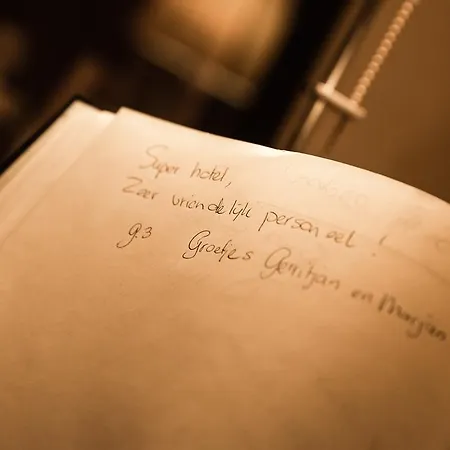 Super hotel,
Zeer vriendelijk personeel!
9.3 Groetjes Gerritjan en Marjan